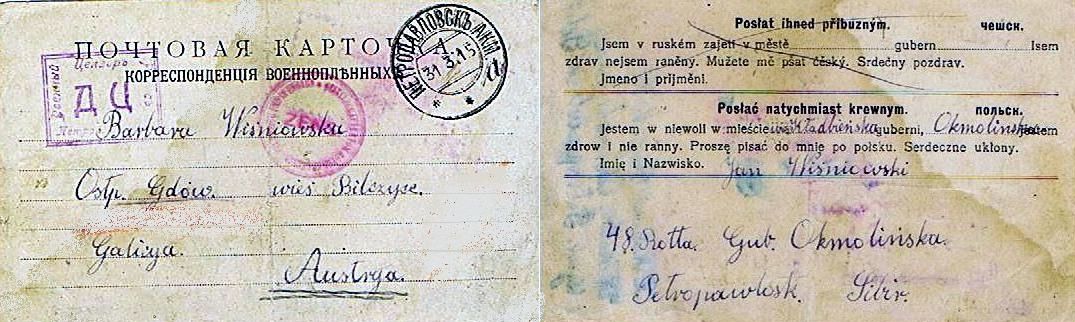 ПОЧТОВАЯ КАРТОЧКА.
КОРРЕСПОНДЕНЦІЯ ВОЕННОПЛѢННЫХЪ
ПЕТРОПАВЛОВСКЪ АКМ.
31 3 15
а
Цензоръ
Д Ц
Barbara Wiśniowska
Ostp. Gdów. wieś Bilczyce.
Galicya.
Austrya.
Posłat ihned příbuzným. чешск.
Jsem v ruském zajetí v městě gubern. Isem
zdráv nejsem raněný. Mužete mě psat česky. Srdečný pozdrav.
Jmeno i prijměni.
Posłać natychmiast krewnym. польск.
Jestem w niewoli w mieście guberni, Okmolinska jestem
zdrow i nie ranny. Proszę pisać do mnie po polsku. Serdeczne ukłony.
Imię i Nazwisko. Jan Wiśniowski
48. Rotta. Gub. Okmolińska.
Petropawłosk. Sibir.